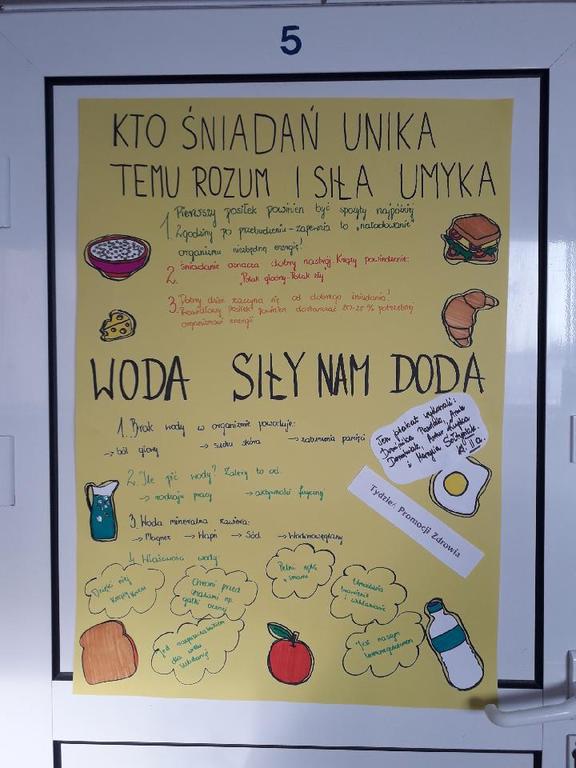 5
KTO ŚNIADAŃ UNIKA
TEMU ROZUM I SIŁA UMYKA
1. Pierwszy posiłek powinien być spożyty najpóźniej
2godziny po przebudzeniu - zapewnia to „naładowanie"
organizmu niezbędną energię!
2. Śniadanie oznacza dobry nastrój. Krąży powiedzenie:
"Polak głodny - Polak zły
3. Dobry dzień zaczyna się od dobrego śniadania!
Prawidłowy posiłek powinien dostarczać 20-25 % potrzebnej
organizmowi energii
WODA SIŁY NAM DODA
1. Brak wody w organizmie powoduje:
→ ból głowy → suchą skórę → zaburzenia pamięci
2. Ile pić wody? Zależy to od:
→ rodzaju pracy → aktywności fizycznej
3. Woda mineralna zawiera:
→ Magnez → Wapń → Sód → Wodorowęglany
4. Właściwości wody:
Ten plakat wykonali:
Dominika
i
kl. II a.
Tydzień Promocji Zdrowia
Chroni przed
urazami np.
gałki ocznej
Pełni rolę
smaru
Umożliwia
trawienie
i wchłanianie
Jest rozpuszczalnikiem
dla wielu
substancji
Jest naszym
termoregulatorem